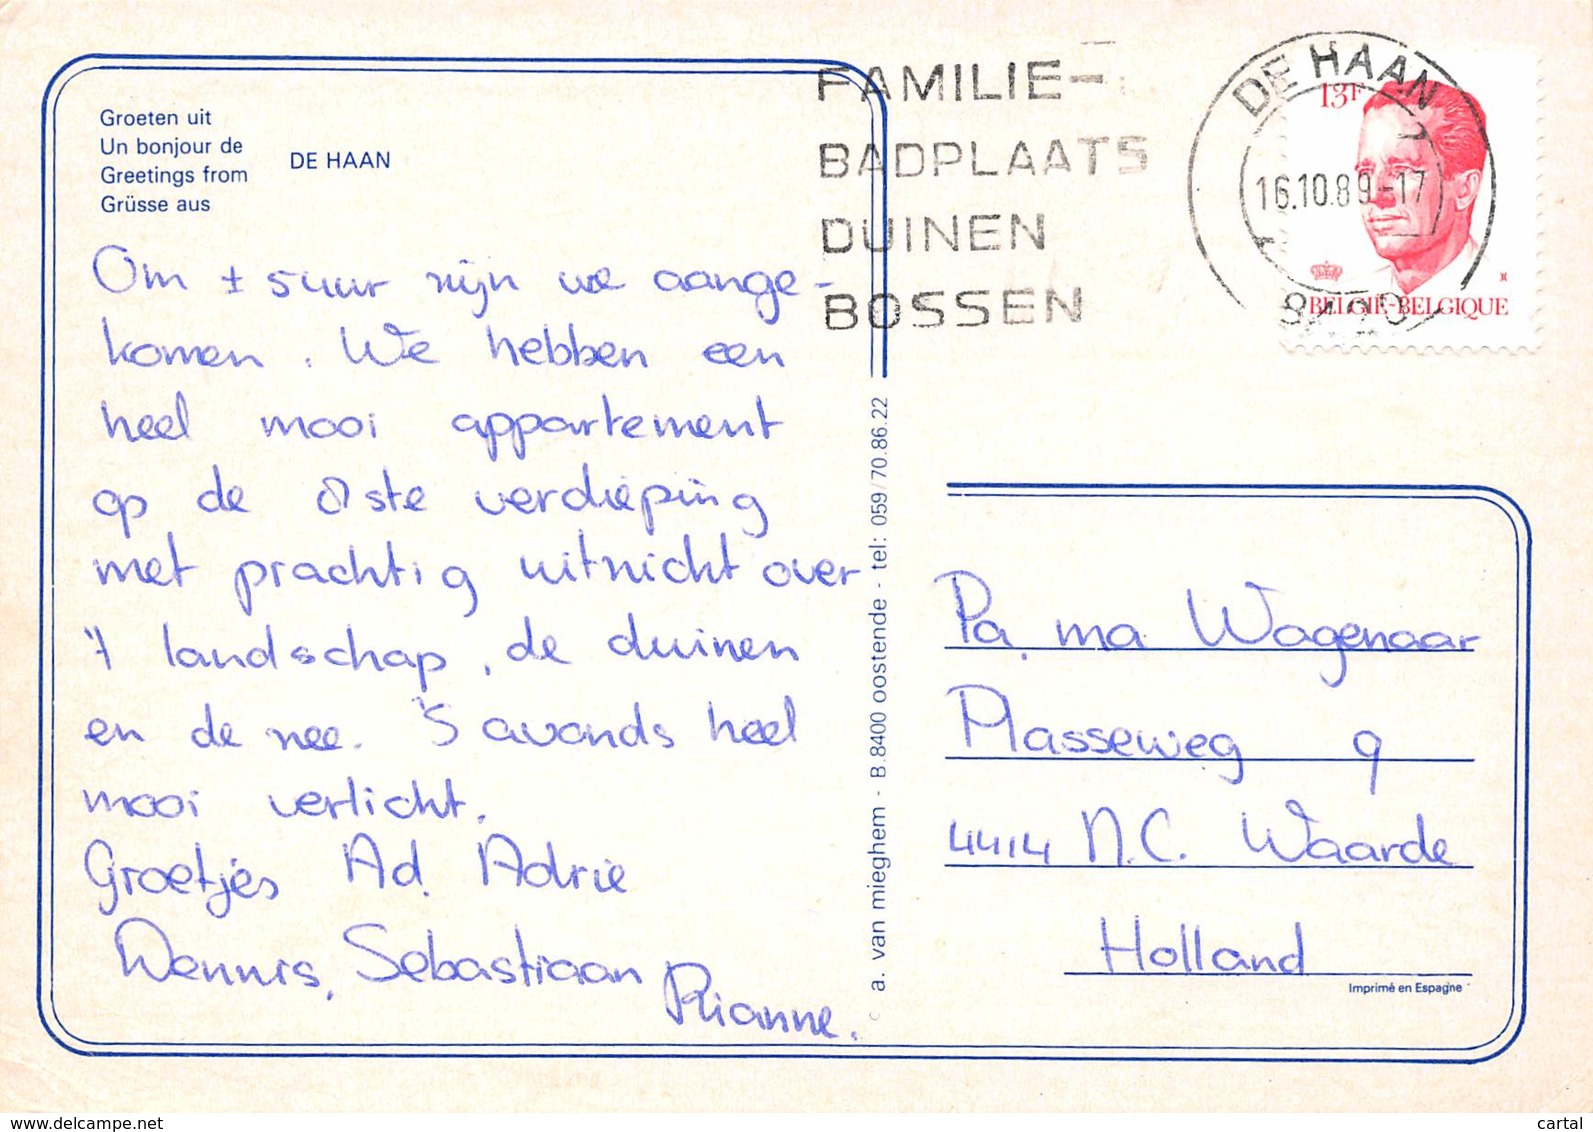 Groeten uit
Un bonjour de
Greetings from
Grüsse aus
DE HAAN
Om ± 5 uur zijn we aange-
komen. We hebben een
heel mooi appartement
op de 8ste verdieping
met prachtig uitzicht over
't landschap, de duinen
en de zee. 'S avonds heel
mooi verlicht.
Groetjes Ad. Adrie
Dennis, Sebastiaan
Rianne.
FAMILIE-
BADPLAATS
DUINEN
BOSSEN
DE HAAN
1
16.10.89-17
13F
BELGIE-BELGIQUE
a. van mieghem - B.8400 oostende - tel: 059/70.86.22
Pa. ma Wagenaar
Plasseweg 9
4414 N.C. Waarde
Holland
Imprimé en Espagne
www.delcampe.net
cartal